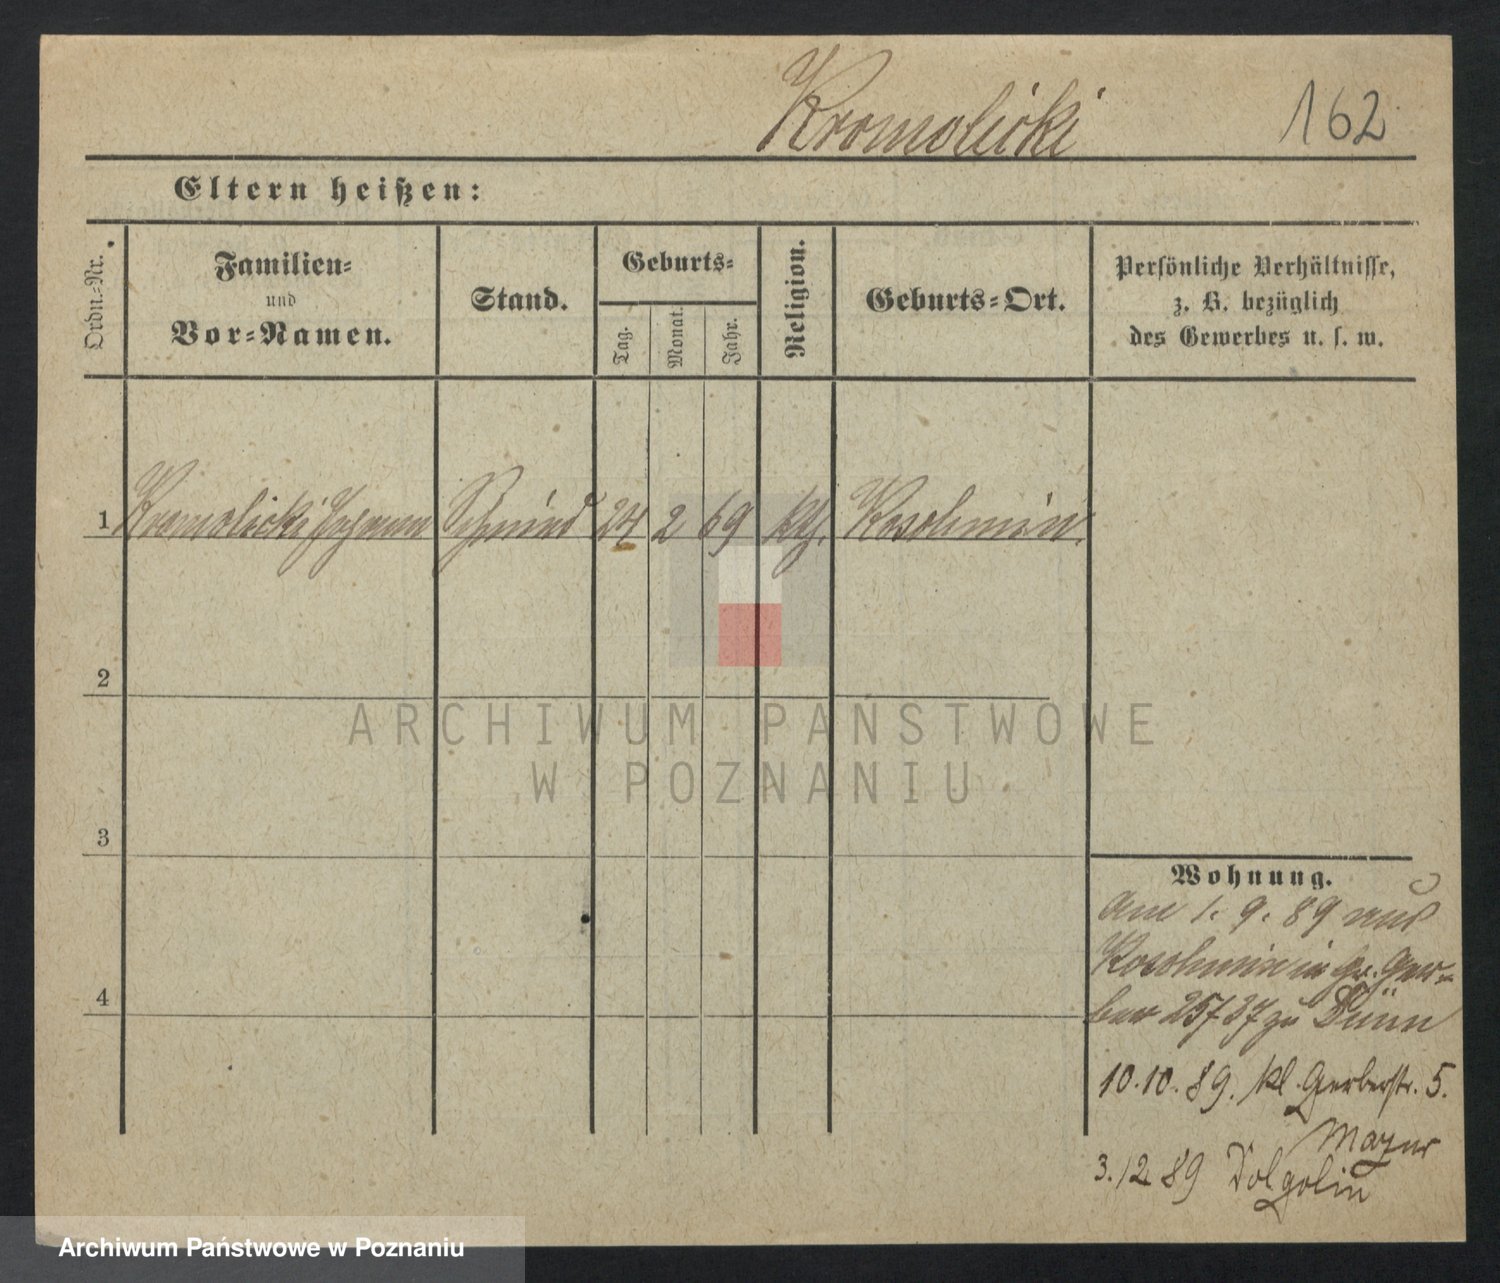 Kromolicki 162
Eltern heißen:
Ordn.-Nr.
Familien-
und
Vor-Namen.
Stand.
Geburts-
Tag.
Monat.
Jahr.
Religion.
Geburts-Ort.
Persönliche Verhältnisse,
z. B. bezüglich
des Gewerbes u. s. w.
1 Kromolicki Johann Schmied 24 2 69 kth. Koschmin
2
3
4
Wohnung.
Am 1. 9. 89 aus
Koschmin in Gr. Ger-
ber 25/37 zu
10.10.89. kl. Gerberstr. 5.
3.12 89 Dolgolin
ARCHIWUM PAŃSTWOWE
W POZNANIU
Archiwum Państwowe w Poznaniu